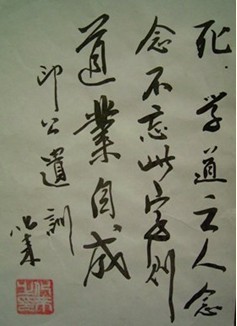 死.学道之人念
念不忘此字则
道業自成
印公遺訓